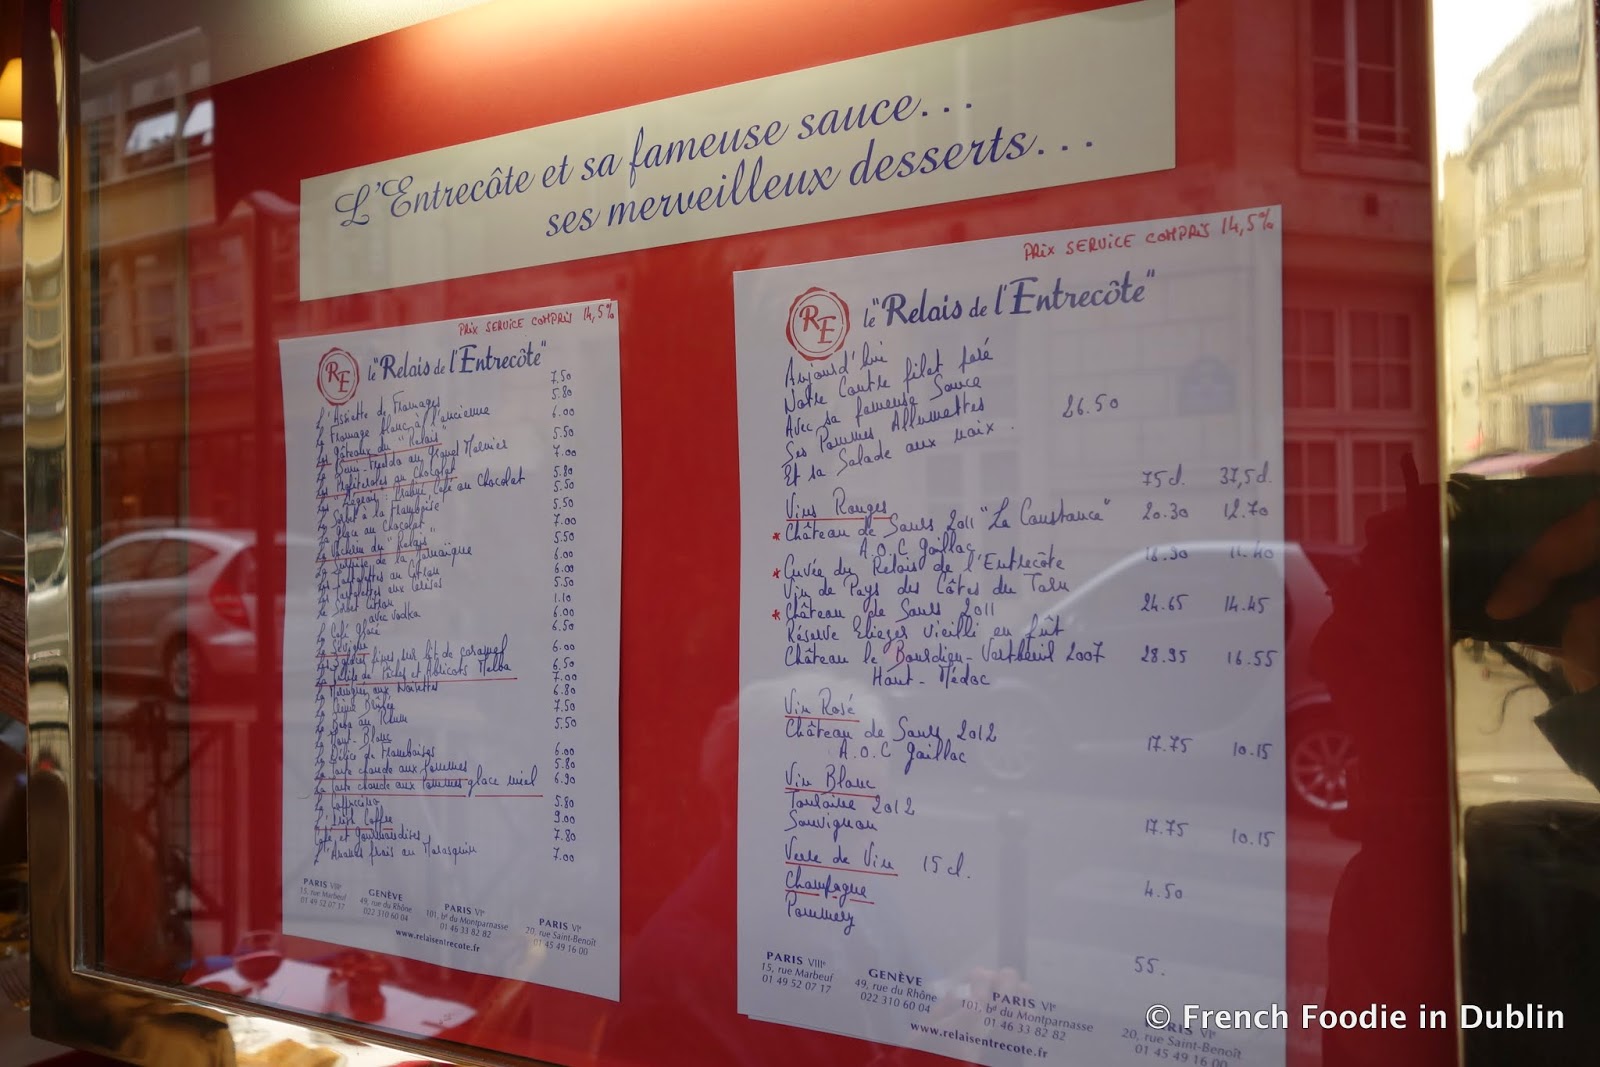 L'Entrecôte et sa fameuse sauce...
ses merveilleux desserts...
PRIX SERVICE COMPRIS 14,5%
RE
le "Relais de l'Entrecôte"
L'Assiette de Fromages 7.50
Le Fromage blanc à l'ancienne 5.80
Les Gâteaux du "Relais" 6.00
au Grand Marnier 5.50
Les Profiteroles au Chocolat 7.00
Café ou Chocolat 5.80
Le Sorbet à la Framboise 5.50
La Glace au Chocolat 5.50
Le Vacherin du "Relais" 7.00
La Surprise de la Jamaïque 5.50
Les Tartelettes au Citron 6.00
Les Tartelettes aux Cerises 6.00
Le Sorbet Citron 5.50
avec vodka
1.10
Le Café Glacé 6.00
6.50
fines sur lit de caramel 6.00
Pêches et Abricots Melba 6.50
Le Meringué aux Noisettes 7.00
La Crème Brûlée 6.80
Le Baba au Rhum 7.50
Le Mont-Blanc 5.50
Le Délice de Framboises 6.00
La Tarte chaude aux Pommes 5.80
La Tarte chaude aux Pommes glace miel 6.90
Le Cappuccino 5.80
L'Irish Coffee 9.00
Café et Gourmandises 7.80
L'Ananas frais au Marasquin 7.00
PARIS VIIIe
15, rue Marbeuf
01 49 52 07 17
GENÈVE
49, rue du Rhône
022 310 60 04
PARIS VIe
101, bd du Montparnasse
01 46 33 82 82
PARIS VIe
20, rue Saint-Benoît
01 45 49 16 00
www.relaisentrecote.fr
PRIX SERVICE COMPRIS 14,5%
RE
le "Relais de l'Entrecôte"
Aujourd'hui
Notre Contre filet paré
Avec sa fameuse Sauce
Ses Pommes Allumettes 26.50
Et sa Salade aux noix.
75 cl. 37,5 cl.
Vins Rouges
* Château de Saurs 2011 "La Constance" 20.30 12.70
A.O.C Gaillac
* Cuvée du Relais de l'Entrecôte 16.90 11.40
Vin de Pays des Côtes du Tarn
* Château de Saurs 2011 24.65 14.45
Réserve Eliezer Vieilli en fût
Château le Bourdieu-Vertheuil 2007 28.95 16.55
Haut-Médoc
Vin Rosé
Château de Saurs 2012 17.75 10.15
A.O.C Gaillac
Vin Blanc
Touraine 2012
Sauvignon 17.75 10.15
Verre de Vin 15 cl. 4.50
Champagne
Pommery 55.
PARIS VIIIe
15, rue Marbeuf
01 49 52 07 17
GENÈVE
49, rue du Rhône
022 310 60 04
PARIS VIe
101, bd du Montparnasse
01 46 33 82 82
PARIS VIe
20, rue Saint-Benoît
01 45 49 16 00
www.relaisentrecote.fr
© French Foodie in Dublin